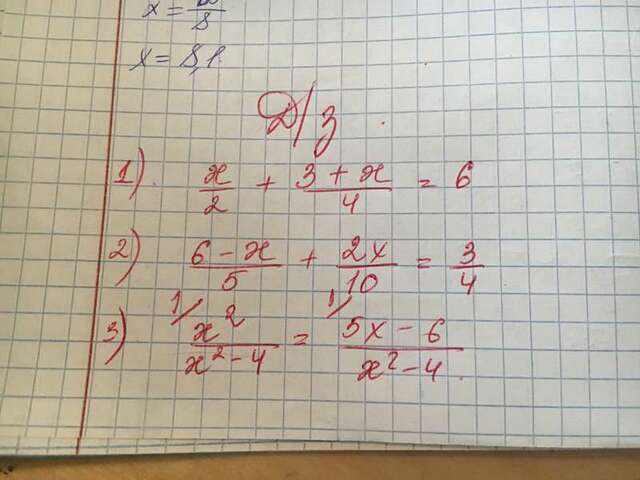 x = /8
x = 8,1.
Д/з
1). x/2 + 3 + x/4 = 6
2) 6 - x/5 + 2x/10 = 3/4
3) 1/ x²/x² - 4 = 1/ 5x - 6/x² - 4.